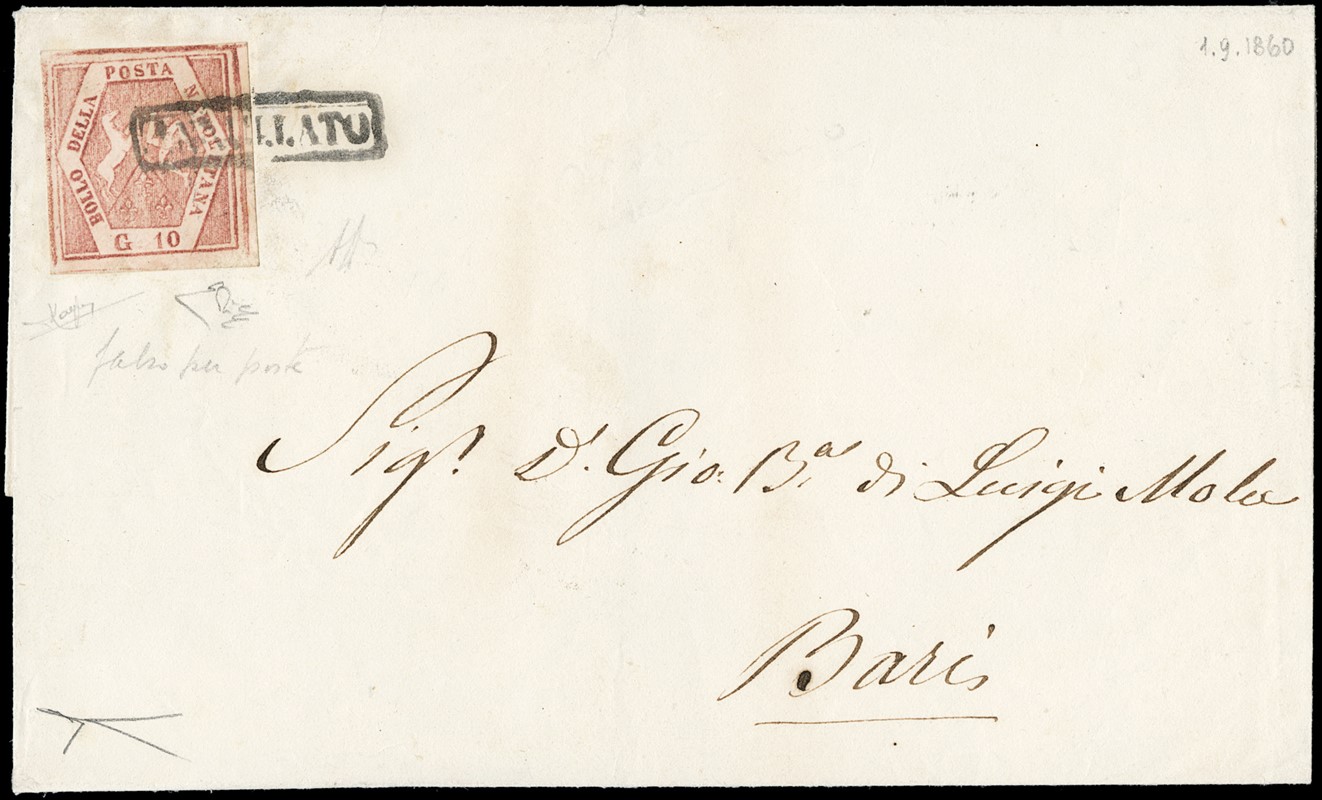 1.9.1860
BOLLO DELLA POSTA NAPOLETANA
G 10
ANNULLATO
falso per posta
Sigr. D. Gio: Ba. di Luigi Mola
Bari